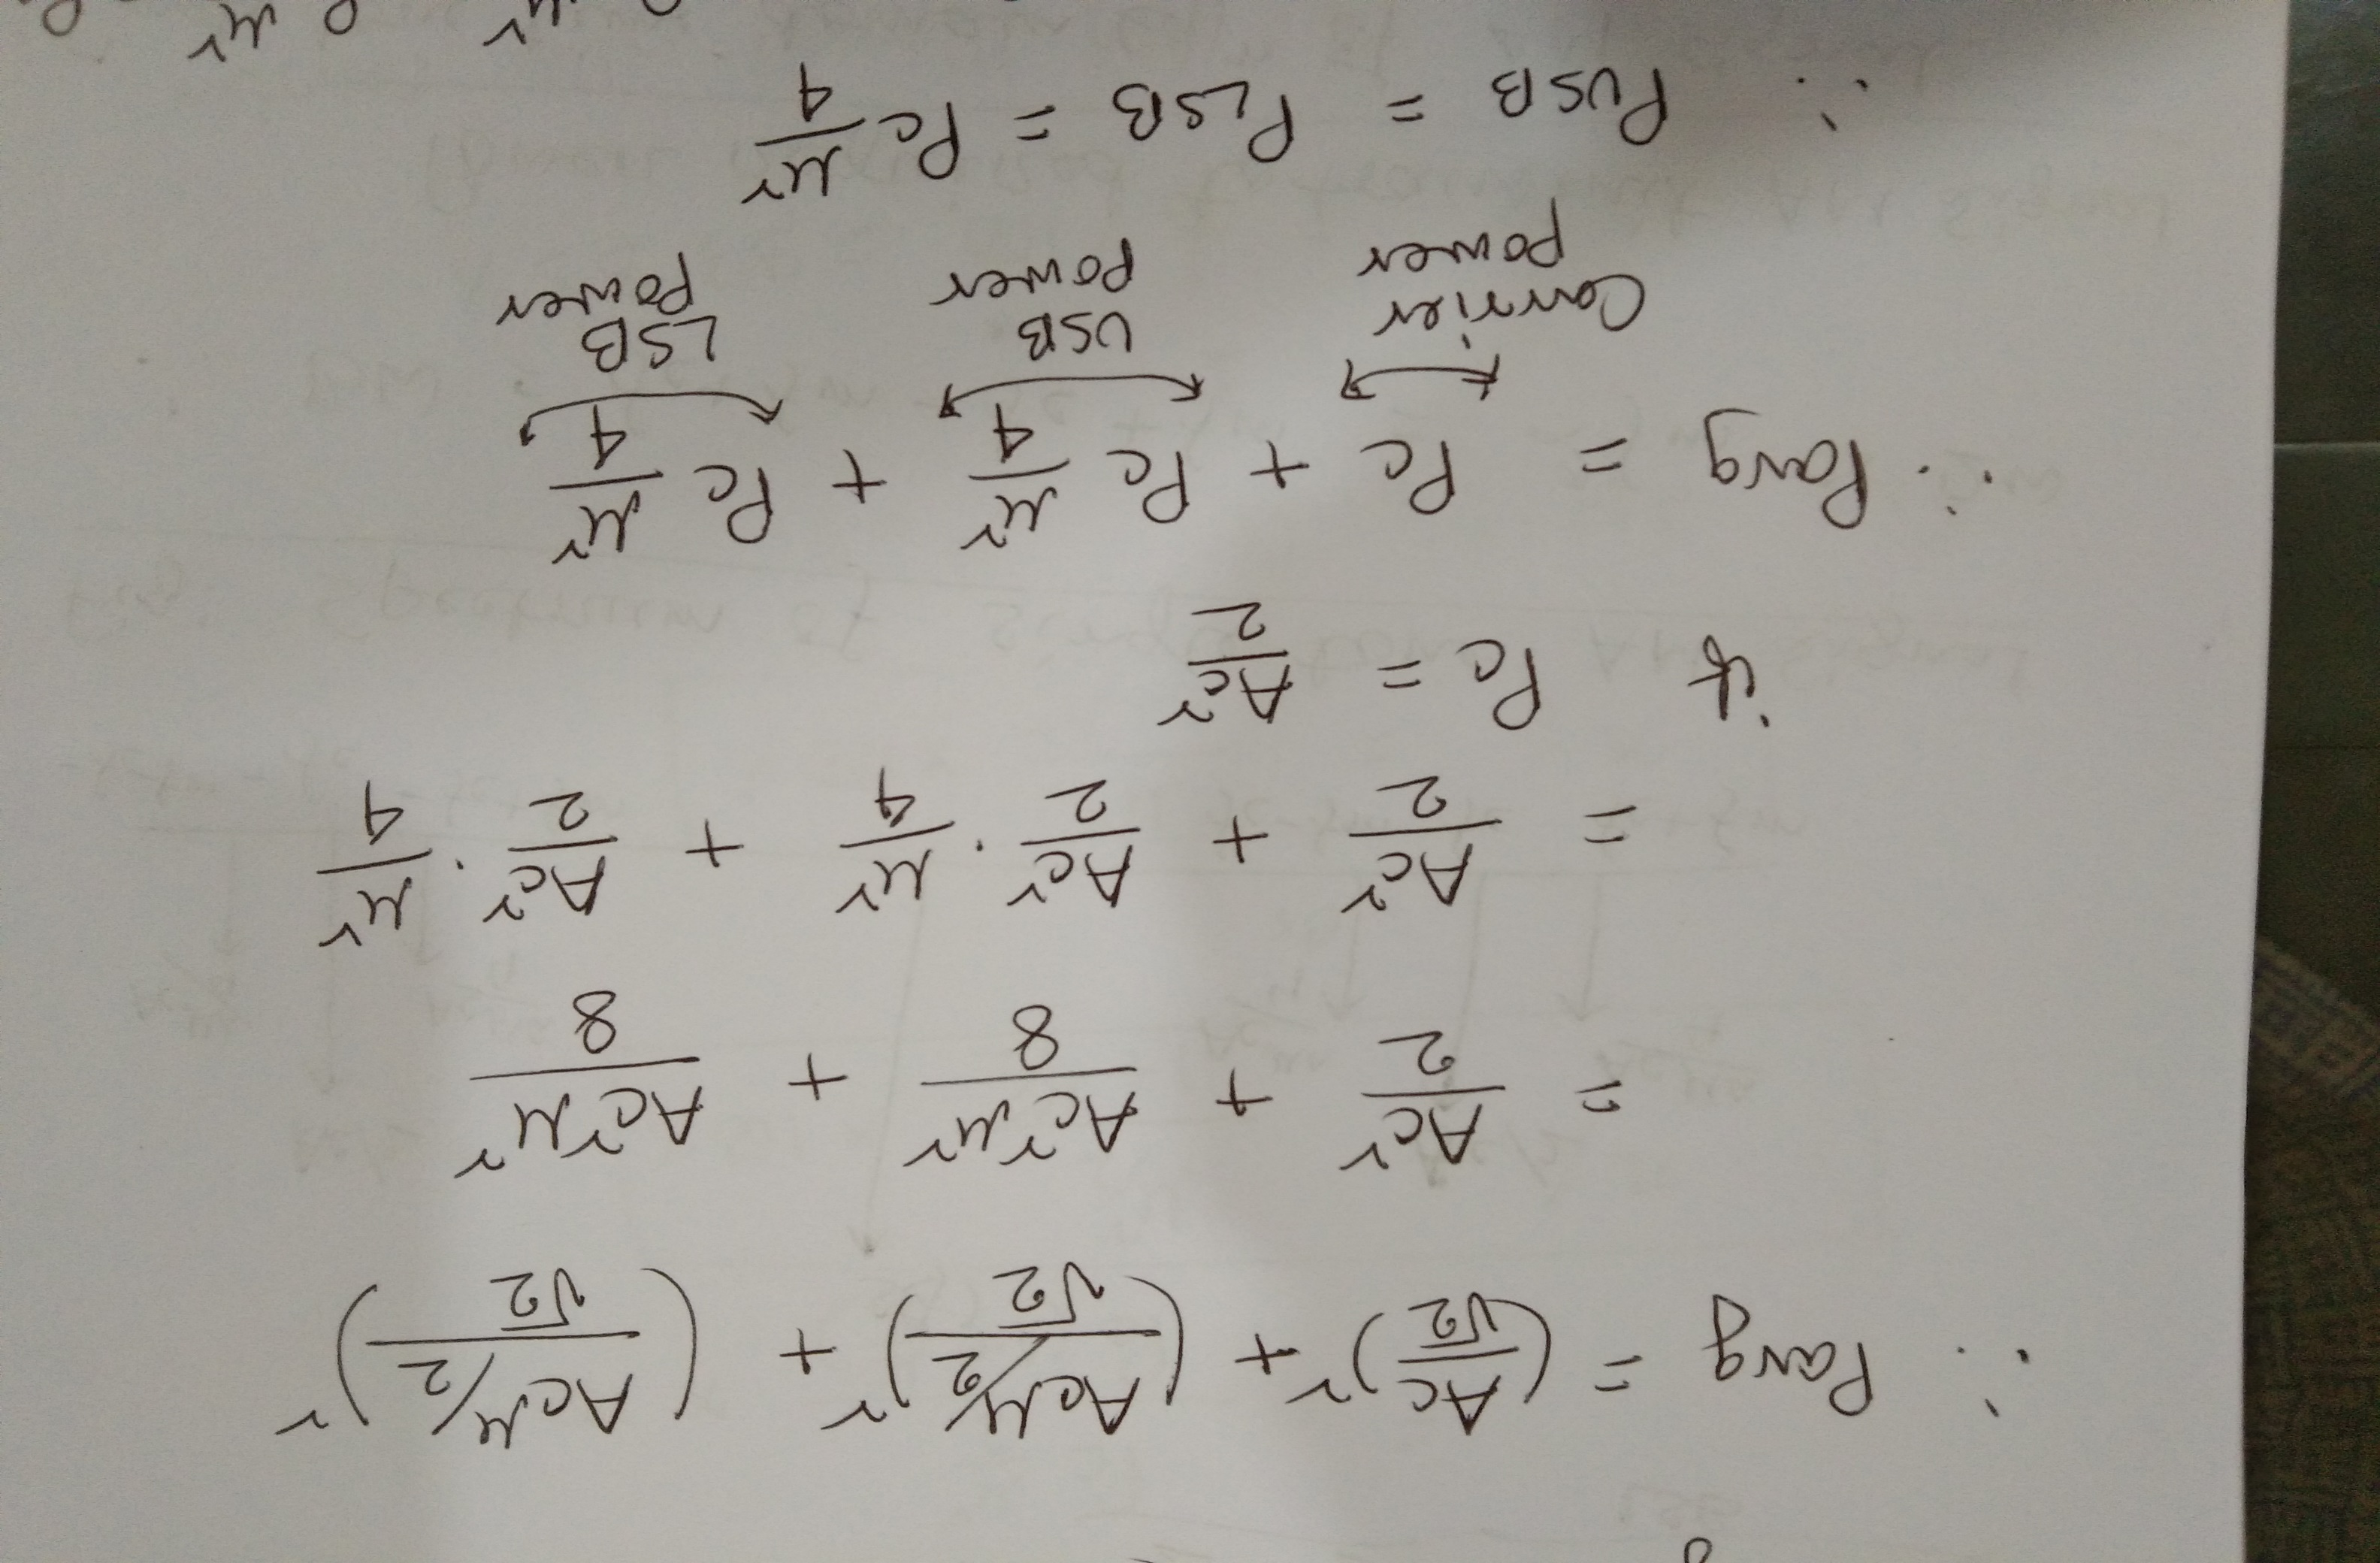 ∴ Pavg = (Ac/√2)² + ((Acμ/2)/√2)² + ((Acμ/2)/√2)²
= Ac²/2 + Ac²μ²/8 + Ac²μ²/8
= Ac²/2 + Ac²/2 · μ²/4 + Ac²/2 · μ²/4
if Pc = Ac²/2
∴ Pavg = Pc + Pc μ²/4 + Pc μ²/4
Carrier power USB power LSB power
∴ PUSB = PLSB = Pc μ²/4